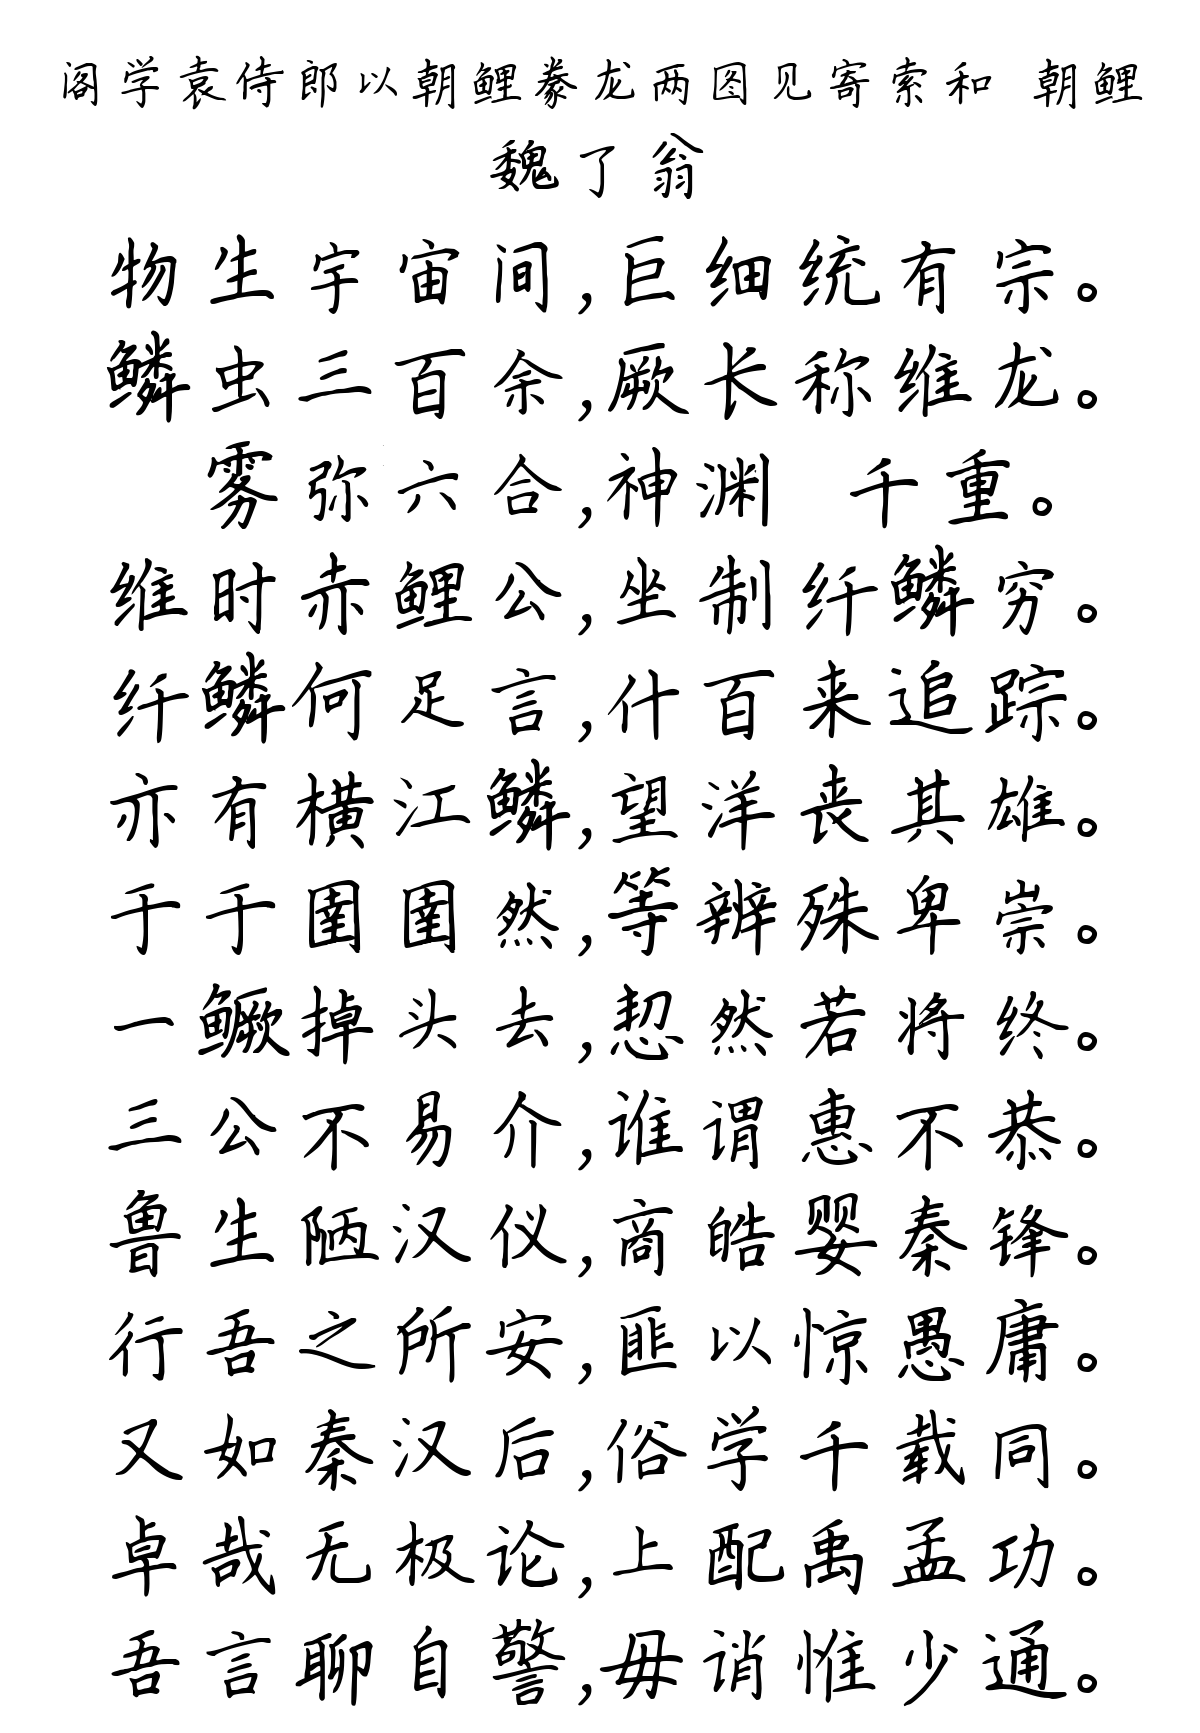 阁学袁侍郎以朝鲤豢龙两图见寄索和 朝鲤
魏了翁
物生宇宙间,巨细统有宗。
鳞虫三百余,厥长称维龙。
雾弥六合,神渊 千重。
维时赤鲤公,坐制纤鳞穷。
纤鳞何足言,什百来追踪。
亦有横江鳞,望洋丧其雄。
于于圉圉然,等辨殊卑崇。
一鳜掉头去,恝然若将终。
三公不易介,谁谓惠不恭。
鲁生陋汉仪,商皓婴秦锋。
行吾之所安,匪以惊愚庸。
又如秦汉后,俗学千载同。
卓哉无极论,上配禹孟功。
吾言聊自警,毋诮惟少通。